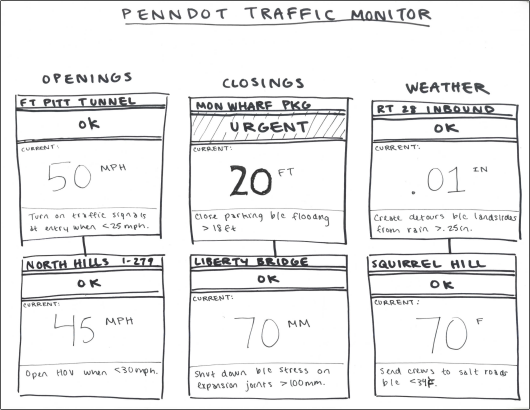 PENNDOT TRAFFIC MONITOR
OPENINGS
FT PITT TUNNEL
OK
CURRENT:
50 MPH
Turn on traffic signals
at entry when <25mph.
NORTH HILLS I-279
OK
CURRENT:
45 MPH
Open HOV when <30mph.
CLOSINGS
MON WHARF PKG
URGENT
CURRENT:
20 FT
Close parking b/c flooding
>18ft
LIBERTY BRIDGE
OK
CURRENT:
70 MM
Shut down b/c stress on
expansion joints >100mm.
WEATHER
RT 28 INBOUND
OK
CURRENT:
.01 IN
Create detours b/c landslides
from rain >.25in.
SQUIRREL HILL
OK
CURRENT:
70 F
Send crews to salt roads
b/c <34F.